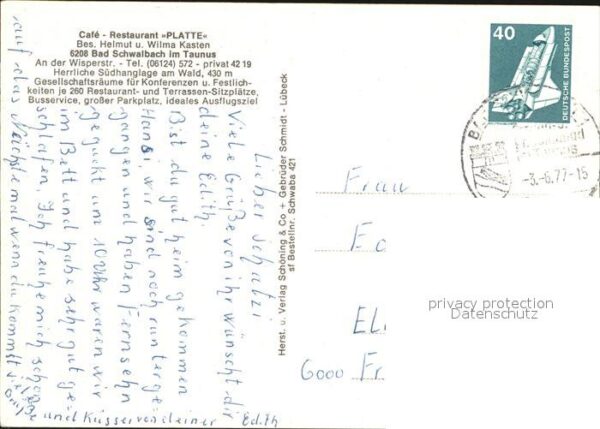 Café - Restaurant »PLATTE«
Bes. Helmut u. Wilma Kasten
6208 Bad Schwalbach im Taunus
An der Wisperstr. - Tel. (06124) 572 - privat 42 19
Herrliche Südhanglage am Wald, 430 m
Gesellschaftsräume für Konferenzen u. Festlich-
keiten je 260 Restaurant- und Terrassen-Sitzplätze,
Busservice, großer Parkplatz, ideales Ausflugsziel
Lieber Schatzi
Viele Grüße von ihr wünscht dir
deine Edith.
Bist du gut heim gekommen
Hansi, wir sind noch runterge
gangen und haben Fernsehn
geguckt um 10 Uhr waren wir
im Bett und habe sehr gut ge
schlafen. Ich freuhe mich schon
auf das Nächste mal wenn du kommst
und Küsse von deiner Edith
Herst. u. Verlag Schöning & Co + Gebrüder Schmidt - Lübeck
sf Bestellnr. Schwaba 421
40
DEUTSCHE BUNDESPOST
-3.-6.77-15
Frau
E
EL
6000 Fr
privacy protection
Datenschutz